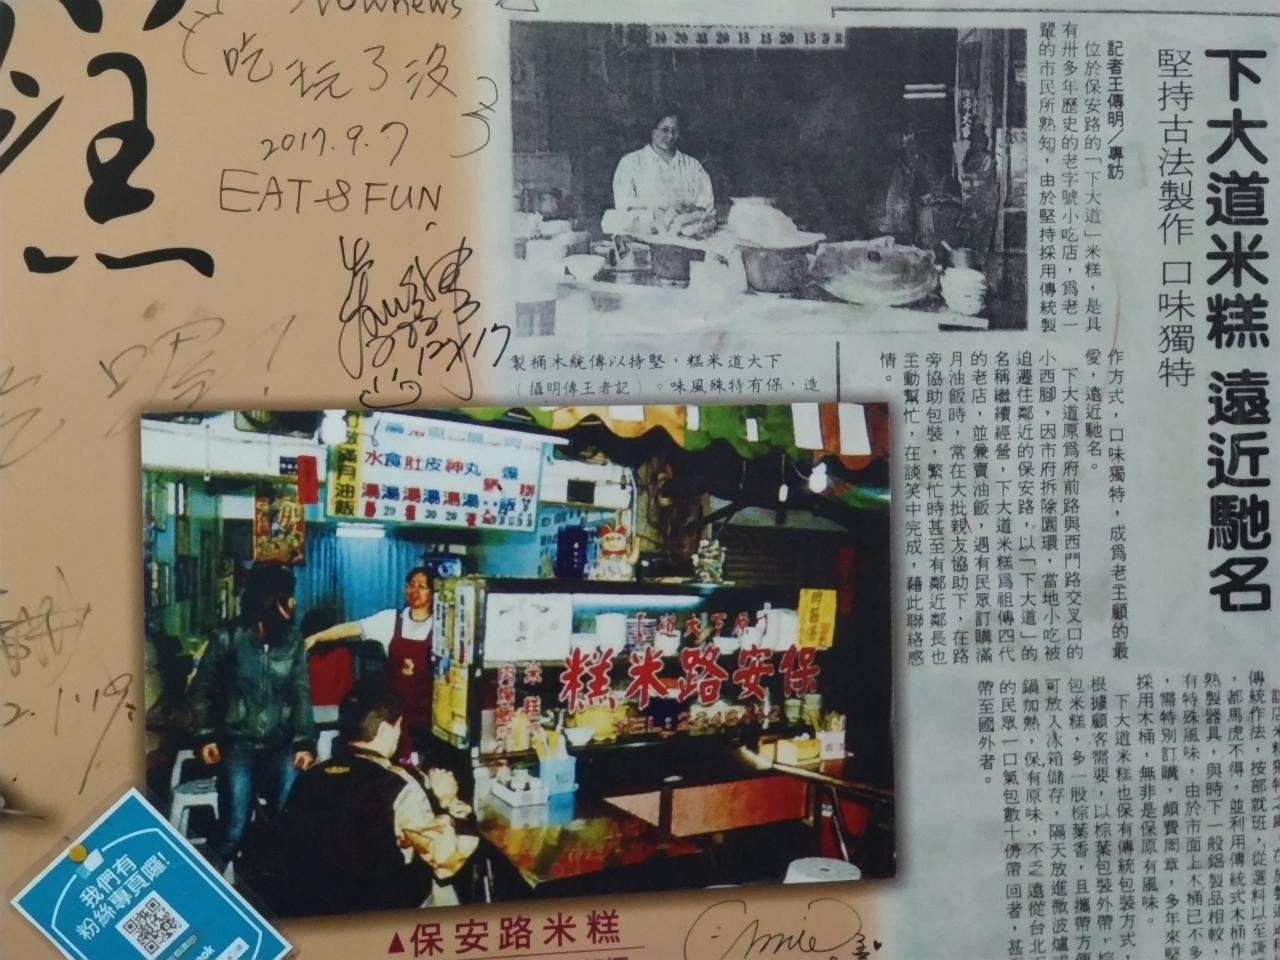 糕
吃玩了沒
2017.9.7
EAT & FUN
下大道米糕 遠近馳名
堅持古法製作 口味獨特
記者王傳明/專訪
位於保安路的「下大道」米糕，是具
有卅多年歷史的老字號小吃店，為老一
輩的市民所熟知，由於堅持採用傳統製
作方式，口味獨特，成為老主顧的最
愛，遠近馳名。
下大道原為府前路與西門路交叉口的
小西腳，因市府拆除圓環，當地小吃被
迫遷往鄰近的保安路，以「下大道」的
名稱繼續經營，下大道米糕為祖傳四代
的老店，並兼賣油飯，遇有民眾訂購滿
月油飯時，常在大批親友協助下，在路
旁協助包裝，繁忙時甚至有鄰近鄰長也
主動幫忙，在談笑中完成，藉此聯絡感
情。
傳統作法，按部就班，從選料以至蒸
都馬虎不得，並利用傳統式木桶作
熟製器具，與時下一般鋁製品相較，
有特殊風味，由於市面上木桶已不多
，需特別訂購，頗費周章，多年來堅
採用木桶，無非是保原有風味。
下大道米糕也保有傳統包裝方式，
根據顧客需要，以棕葉包裝外帶，棕
包米糕，多一股棕葉香，且攜帶方便
可放入冰箱儲存，隔天放進微波爐或
鍋加熱，保有原味，不乏遠從台北
的民眾一口氣包數十份帶回者，甚
帶至國外者。
下大道米糕，堅持以傳統木桶製
造，保有特殊風味。（記者王傳明攝）
滿月油飯
水食肚皮神丸
湯湯湯湯湯湯
〔原下大道〕
保安路米糕
TEL:
我們有
粉絲專頁囉!
▲保安路米糕
Amie